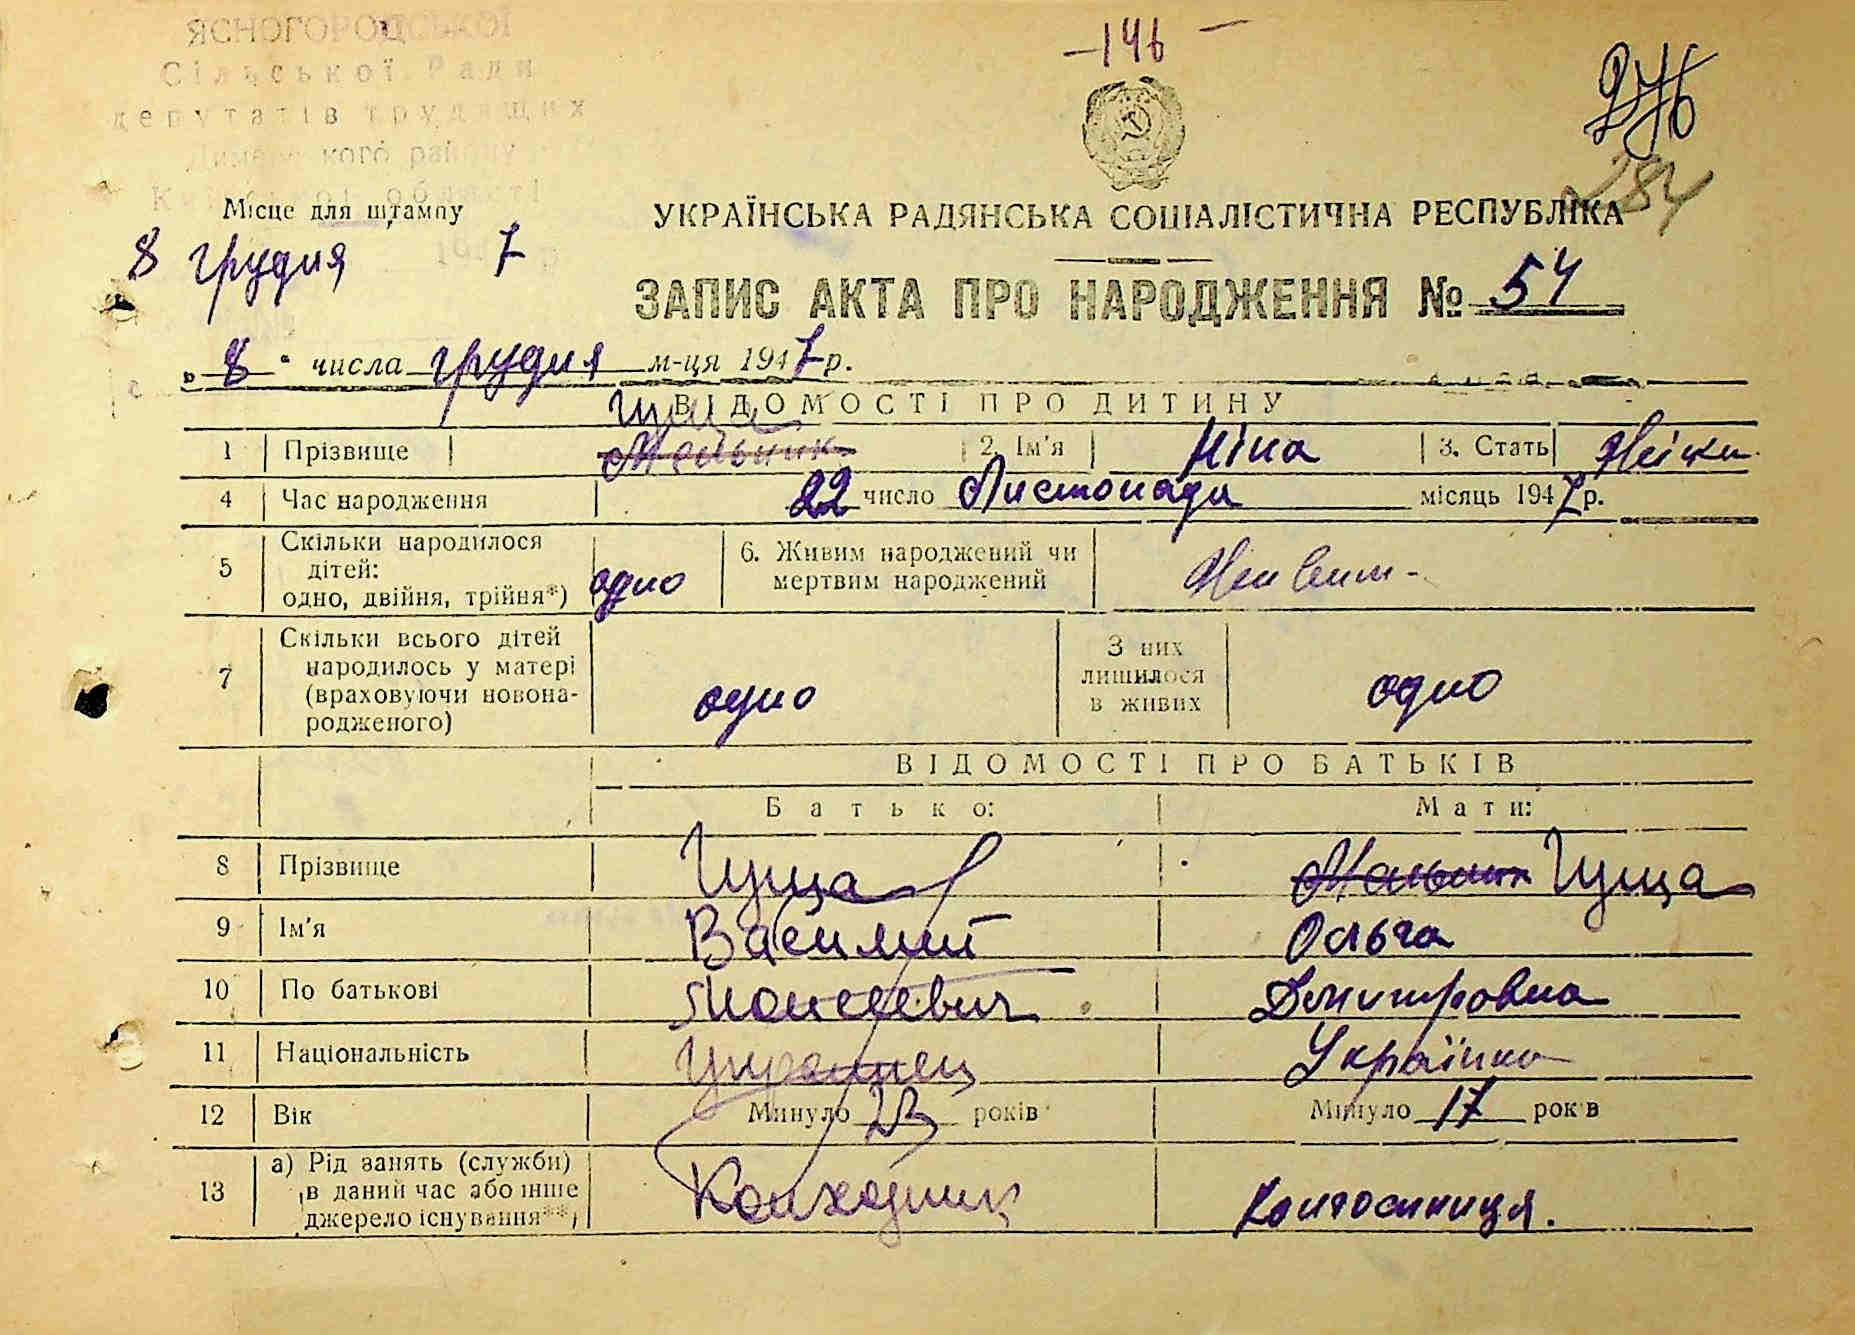 -146-
276
284
ЯСНОГОРОДСЬКОЇ
Сільської Ради
депутатів трудящих
Димерського району
Київської області
Місце для штампу
8 грудня 7
УКРАЇНСЬКА РАДЯНСЬКА СОЦІАЛІСТИЧНА РЕСПУБЛІКА
ЗАПИС АКТА ПРО НАРОДЖЕННЯ № 54
„ 8 " числа грудня м-ця 1947 р.
ВІДОМОСТІ ПРО ДИТИНУ
Гуща
1 Прізвище Мельник 2. Ім'я Ніна 3. Стать Жіноч.
4 Час народження 22 число Листопада місяць 1947 р.
5 Скільки народилося дітей: одно, двійня, трійня*) одно 6. Живим народжений чи мертвим народжений Живим-
7 Скільки всього дітей народилось у матері (враховуючи новонародженого) одно З них лишилося в живих одно
ВІДОМОСТІ ПРО БАТЬКІВ
Батько: Мати:
8 Прізвище Гуща Мельник Гуща
9 Ім'я Василий Ольга
10 По батькові Моисеевич Дмитровна
11 Національність Украинец Українка
12 Вік Минуло 23 років Минуло 17 років
13 а) Рід занять (служби) в даний час або інше джерело існування**) Колхозник Колгоспниця.